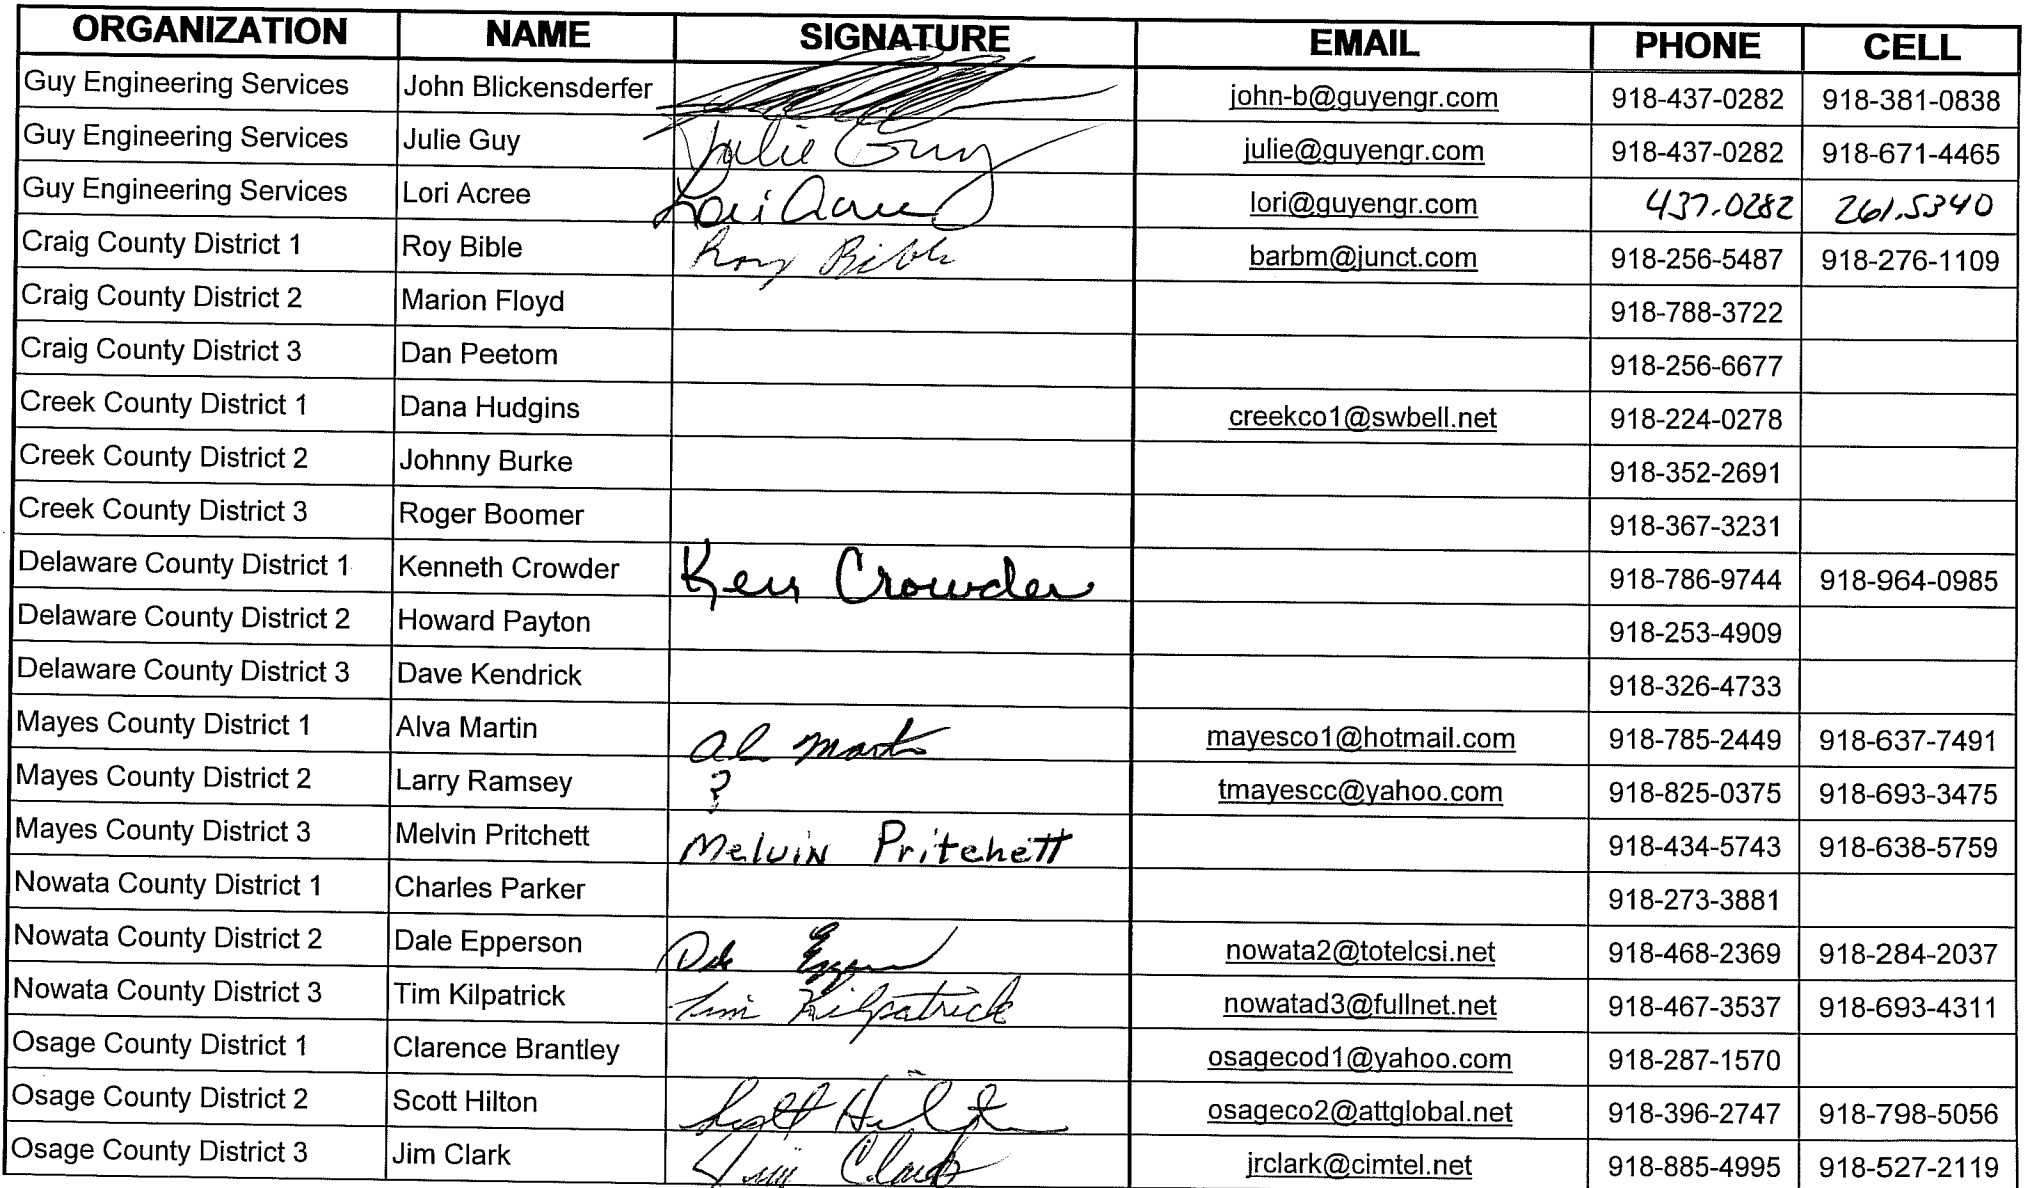 ORGANIZATION NAME SIGNATURE EMAIL PHONE CELL
Guy Engineering Services John Blickensderfer john-b@guyengr.com 918-437-0282 918-381-0838
Guy Engineering Services Julie Guy Julie Guy julie@guyengr.com 918-437-0282 918-671-4465
Guy Engineering Services Lori Acree Lori Acree lori@guyengr.com 437.0282 261.5340
Craig County District 1 Roy Bible Roy Bible barbm@junct.com 918-256-5487 918-276-1109
Craig County District 2 Marion Floyd 918-788-3722
Craig County District 3 Dan Peetom 918-256-6677
Creek County District 1 Dana Hudgins creekco1@swbell.net 918-224-0278
Creek County District 2 Johnny Burke 918-352-2691
Creek County District 3 Roger Boomer 918-367-3231
Delaware County District 1 Kenneth Crowder Ken Crowder 918-786-9744 918-964-0985
Delaware County District 2 Howard Payton 918-253-4909
Delaware County District 3 Dave Kendrick 918-326-4733
Mayes County District 1 Alva Martin Al Martin mayesco1@hotmail.com 918-785-2449 918-637-7491
Mayes County District 2 Larry Ramsey ? tmayescc@yahoo.com 918-825-0375 918-693-3475
Mayes County District 3 Melvin Pritchett Melvin Pritchett 918-434-5743 918-638-5759
Nowata County District 1 Charles Parker 918-273-3881
Nowata County District 2 Dale Epperson Dale Epperson nowata2@totelcsi.net 918-468-2369 918-284-2037
Nowata County District 3 Tim Kilpatrick Tim Kilpatrick nowatad3@fullnet.net 918-467-3537 918-693-4311
Osage County District 1 Clarence Brantley osagecod1@yahoo.com 918-287-1570
Osage County District 2 Scott Hilton Scott Hilton osageco2@attglobal.net 918-396-2747 918-798-5056
Osage County District 3 Jim Clark Jim Clark jrclark@cimtel.net 918-885-4995 918-527-2119